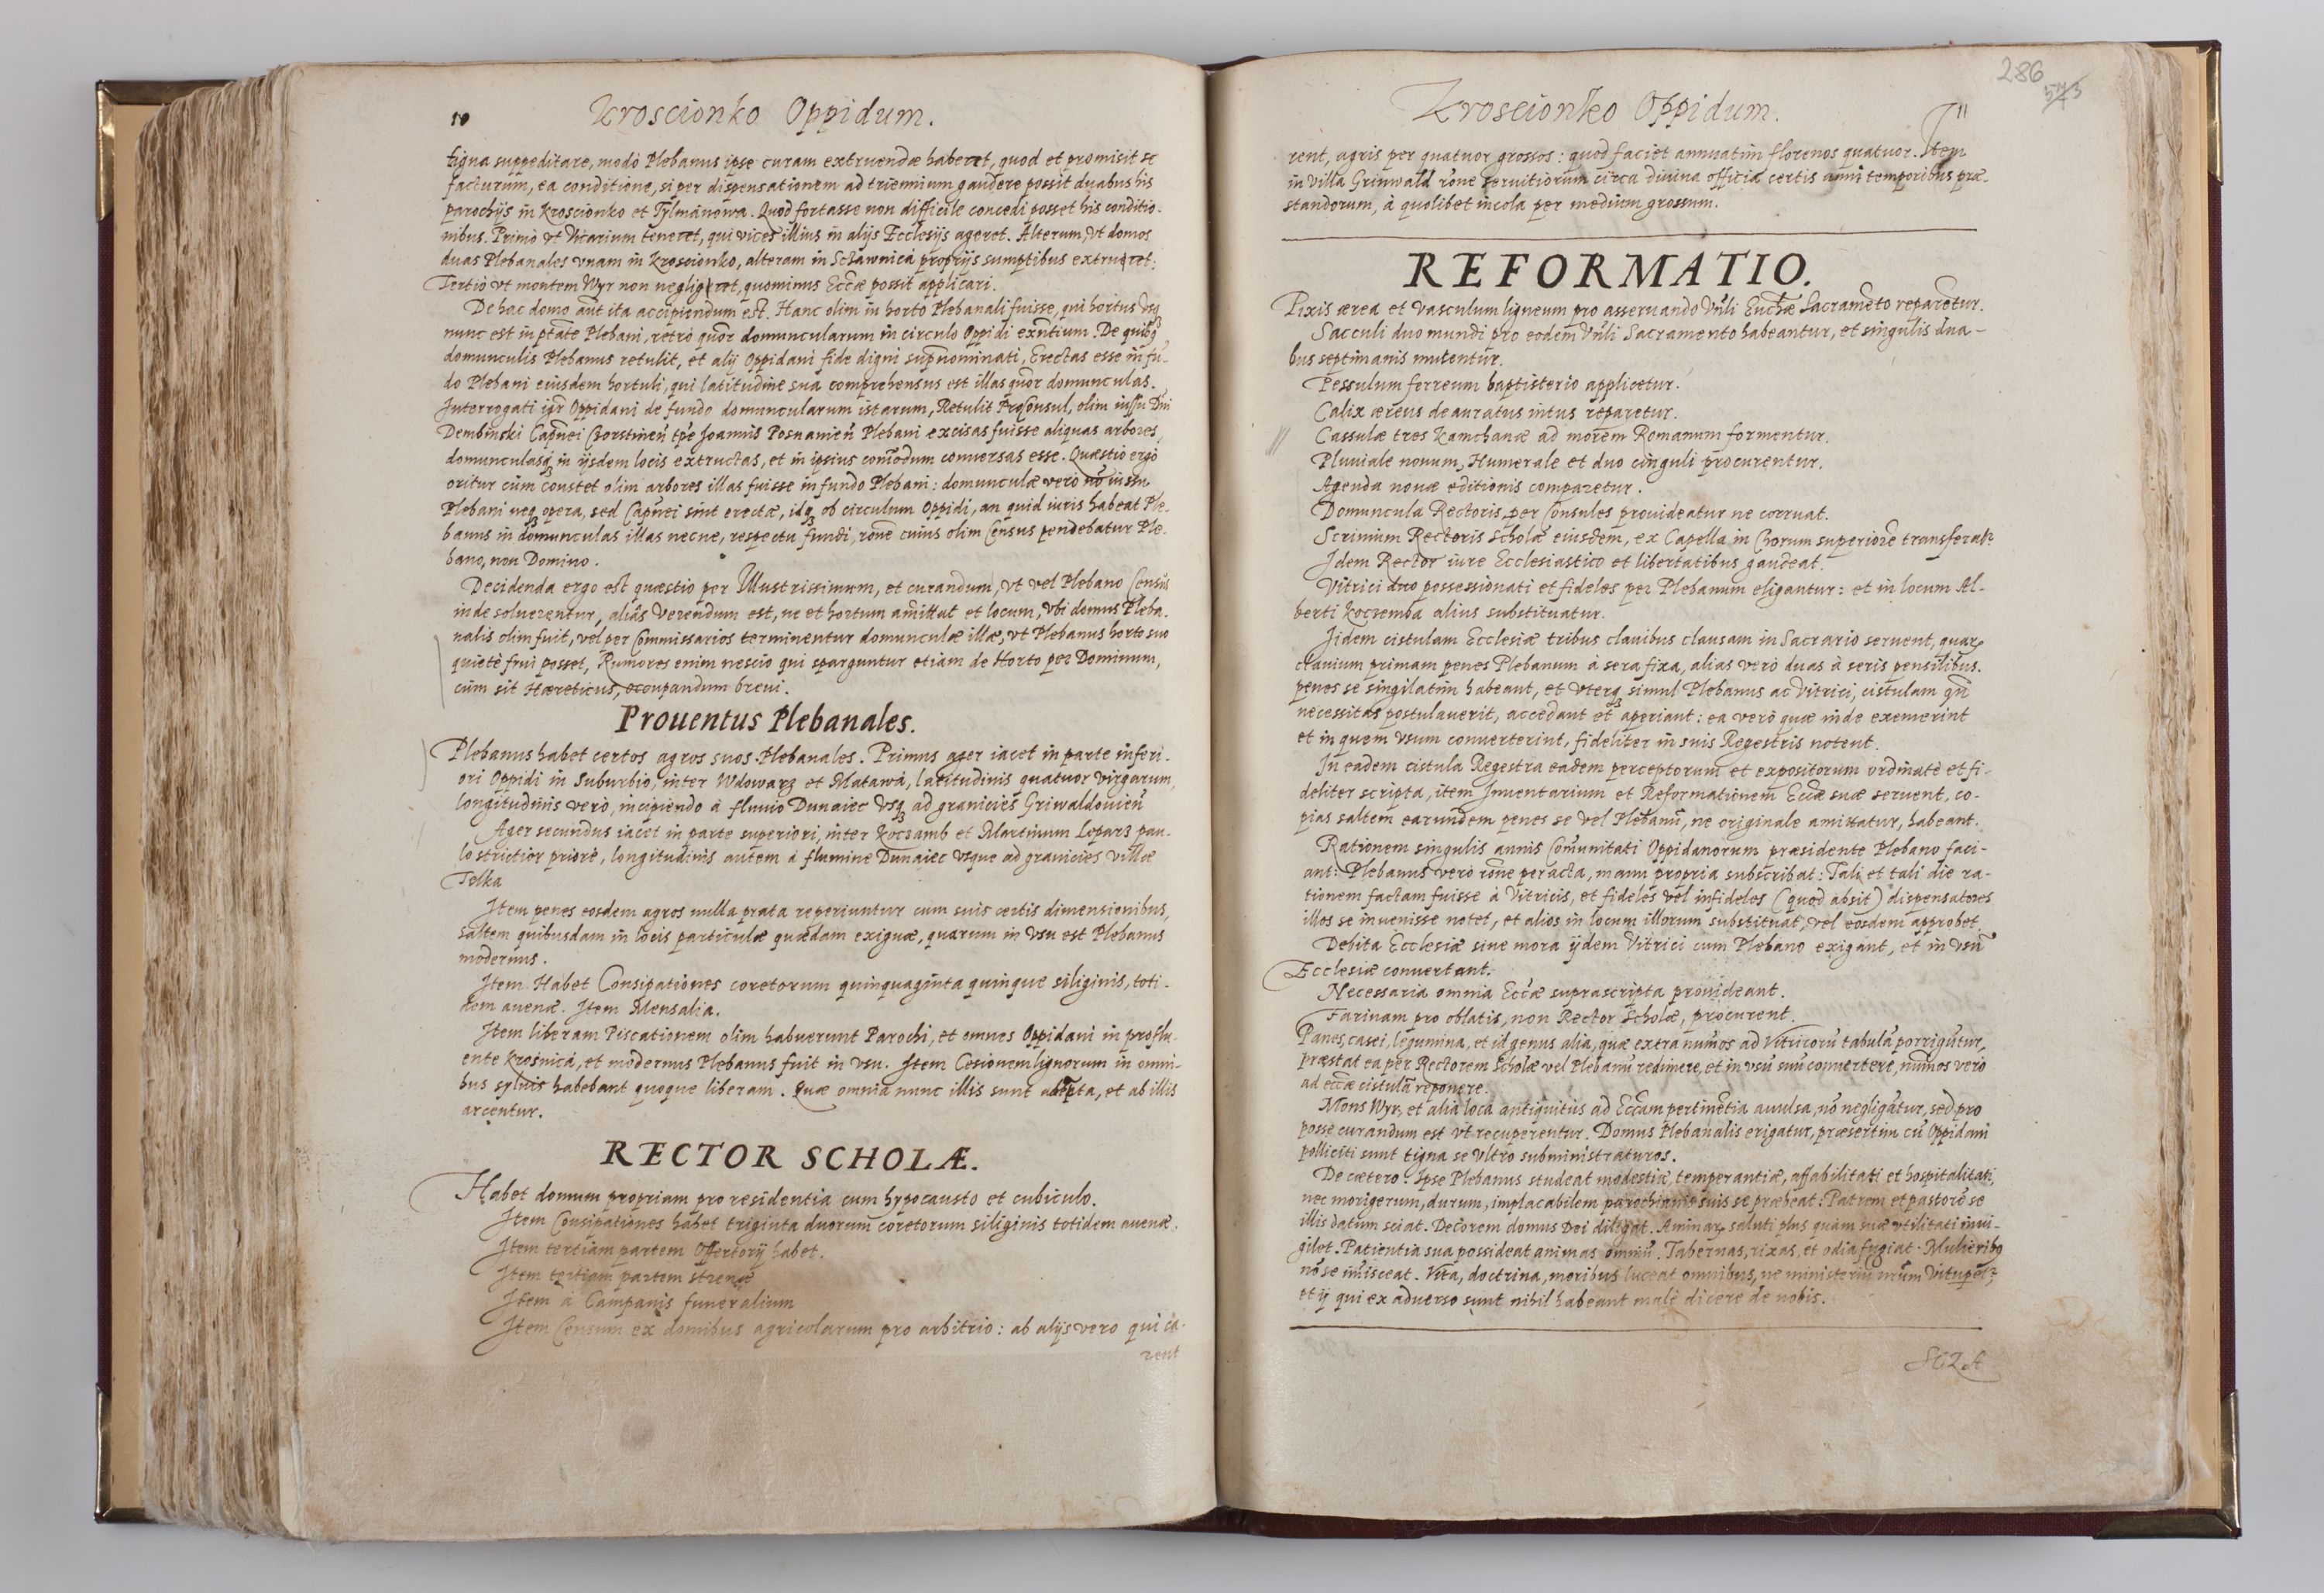 10 Kroscionko Oppidum.
tigna suppeditare, modò Plebanus ipse curam extruendæ haberet, quod et promisit se
facturum, ea conditione, si per dispensationem ad triennium gaudere possit duabus his
parochijs in Kroscionko et Tylmanowa. Quod fortasse non difficile concedi posset his conditio-
nibus. Primò vt Vicarium teneret, qui vices illius in alijs Ecclesijs ageret. Alterum, vt domos
duas Plebanales vnam in Kroscionko, alteram in Sczawnicá proprijs sumptibus extrueret:
Tertiò vt montem Wyr non negligeret, quominus Eccæ possit applicari.
De hac domo aut ita accipiendum est. Hanc olim in horto Plebanali fuisse, qui hortus vsq
nunc est in ptate Plebani, retrò quor domuncularum in circulo Oppidi exntium. De quibq
domunculis Plebanus retulit, et alij Oppidani fide digni supnominati, Erectas esse in fu-
do Plebani eiusdem hortuli, qui latitudine sua comprehensus est illas quor domunculas.
Interrogati igr Oppidani de fundo domuncularum istarum, Retulit ProConsul, olim iussu Dni
Dembinski Capnei Czorstineñ tpe Joannis Posnanieñ Plebani excisas fuisse aliquas arbores,
domunculasq in ijsdem locis extructas, et in ipsius comodum conuersas esse. Quæstio ergò
oritur cùm constet olim arbores illas fuisse in fundo Plebani: domunculæ verò no iussu
Plebani neq opera, sed Capnei sint erectæ, idq ob circulum Oppidi, an quid iuris habeat Ple-
banus in domunculas illas necne, respectu fundi, rone cuius olim Census pendebatur Ple-
bano, non Domino.
Decidenda ergo est quæstio per Illustrissimum, et curandum, vt vel Plebano Census
inde soluerentur, aliâs verendum est, ne et hortum amittat et locum, vbi domus Pleba-
nalis olim fuit, vel per Commissarios terminentur domunculæ illæ, vt Plebanus horto suo
quietè frui posset, Rumores enim nescio qui sparguntur etiàm de Horto per Dominum,
cùm sit Hæreticus, occupandum breui.
Prouentus Plebanales.
Plebanus habet certos agros suos Plebanales. Primus ager iacet in parte inferi-
ori Oppidi in Suburbio, inter Wdowarz et Matawá, latitudinis quatuor virgarum,
longitudinis verò, incipiendo à fluuio Dunaiec vsq ad granicies Griwaldouieñ
Ager secundus iacet in parte superiori, inter Koczamb et Martinum Leparz pau-
lo strictior priorè, longitudinis autem à flumine Dunaiec vsque ad granicies villæ
Tolka
Item penes eosdem agros nulla prata reperiuntur cum suis certis dimensionibus,
saltem quibusdam in locis particulæ quædam exiguæ, quarum in vsu est Plebanus
modernus.
Item Habet Consipationes coretorum quinquaginta quinque siliginis, toti-
dem auenæ. Item Mensalia.
Item liberam Piscationem olim habuerunt Parochi, et omnes Oppidani in proflu-
ente Krosnicá, et modernus Plebanus fuit in vsu. Item Cesionem lignorum in omni-
bus syluis habebant quoque liberam. Quæ omnia nunc illis sunt adepta, et ab illis
arcentur.
RECTOR SCHOLÆ.
Habet domum propriam pro residentia cum hypocausto et cubiculo.
Item Consipationes habet triginta duorum coretorum siliginis totidem auenæ.
Item tertiam partem Offertorij habet.
Item tertiam partem strenæ
Item à Campanis funeralium
Item Censum ex domibus agricolarum pro arbitrio: ab alijs vero qui ca-
rent
286
Kroscionko Oppidum. 11
rent, agris per quatuor grossos: quod faciet annuatim florenos quatuor. Item
in villa Grinwald rone seruitiorum circa diuina officia certis anni temporibus præ-
standorum, à quolibet incola per medium grossum.
REFORMATIO.
Pixis ærea et vasculum ligneum pro asseruando Vnli Euchæ Sacrameto reparetur.
Sacculi duo mundi pro eodem Vnli Sacramento habeantur, et singulis dua-
bus septimanis mutentur.
Pessulum ferreum baptisterio applicetur.
Calix æreus deauratus intus reparetur.
Cassulæ tres Kamchanæ ad morem Romanum formentur.
Pluuiale nouum, Humerale et duo cinguli procurentur.
Agenda nouæ editionis comparetur.
Domuncula Rectoris, per Consules prouideatur ne corruat.
Scrinium Rectoris Scholæ eiusdem, ex Capella in Chorum superiore transferatr
Idem Rector iure Ecclesiastico et libertatibus gaudeat.
Vitrici duo possessionati et fideles per Plebanum eligantur: et in locum Al-
berti Koczemba alius substituatur.
Iidem cistulam Ecclesiæ tribus clauibus clausam in Sacrario seruent, quar
clauium primam penes Plebanum à sera fixa, alias verò duas à seris pensilibus.
penes se singilatim habeant, et vterq simul Plebanus ac Vitrici, cistulam qn
necessitas postulauerit, accedant et aperiant: ea verò quæ inde exemerint
et in quem vsum conuerterint, fideliter in suis Regestris notent.
In eadem cistula Regestra eadem perceptorum et expositorum ordinatè et fi-
deliter scripta, item Inuentarium et Reformationem Eccæ suæ seruent, co-
pias saltem earundem penes se vel Plebanū, ne originale amittatur, habeant.
Rationem singulis annis Comunitati Oppidanorum præsidente Plebano faci-
ant: Plebanus verò rone peracta, manu propria subscribat: Tali et tali die ra-
tionem factam fuisse à Vitricis, et fideles vel infideles (quod absit) dispensatores
illos se inuenisse notet, et alios in locum illorum substituat, vel eosdem approbet
Debita Ecclesiæ sine mora ijdem Vitrici cum Plebano exigant, et in vsū
Ecclesiæ conuertant.
Necessaria omnia Eccæ suprascripta prouideant.
Farinam pro oblatis, non Rector Scholæ, procurent.
Panes, casei, legumina, et id genus alia, quæ extra numos ad Vitricorū tabulā porrigūtur,
præstat ea per Rectorem Scholæ vel Plebanū redimere, et in vsū suū conuertere, numos verò
ad eccæ cistulā reponere.
Mons Wyr, et alia loca antiquitùs ad Eccam pertinetia auulsa, nō negligātur, sed pro
posse curandum est vt recuperentur. Domus Plebanalis erigatur, præsertim cū Oppidani
polliciti sunt tigna se vltrò subministraturos.
De cætero. Ipse Plebanus studeat modestiæ, temperantiæ, affabilitati et hospitalitati,
nec morigerum, durum, implacabilem parochianis suis se præbeat: Patrem et pastorē se
illis datum sciat. Decorem domus Dei diligat. Animar saluti plus quàm suæ vtilitati inui-
gilet. Patientia sua possideat animas omniū. Tabernas, rixas, et odia fugiat. Mulieribq
nō se imisceat. Vita, doctrina, moribus luceat omnibus, ne ministeriū nrum vitupetr,
et ij qui ex aduerso sunt nihil habeant malè dicere de nobis.